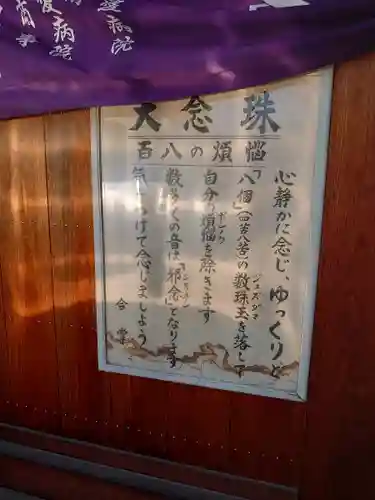 大念珠
百八の煩悩
心静かに念じ、ゆっくりと
「八個」(四苦八苦)の数珠玉を落して
ジュズダマ
自分の煩悩を除きます
ボンノウ
数多くの音は「邪念」となります
気をつけて念じましょう
合掌
病院
病院